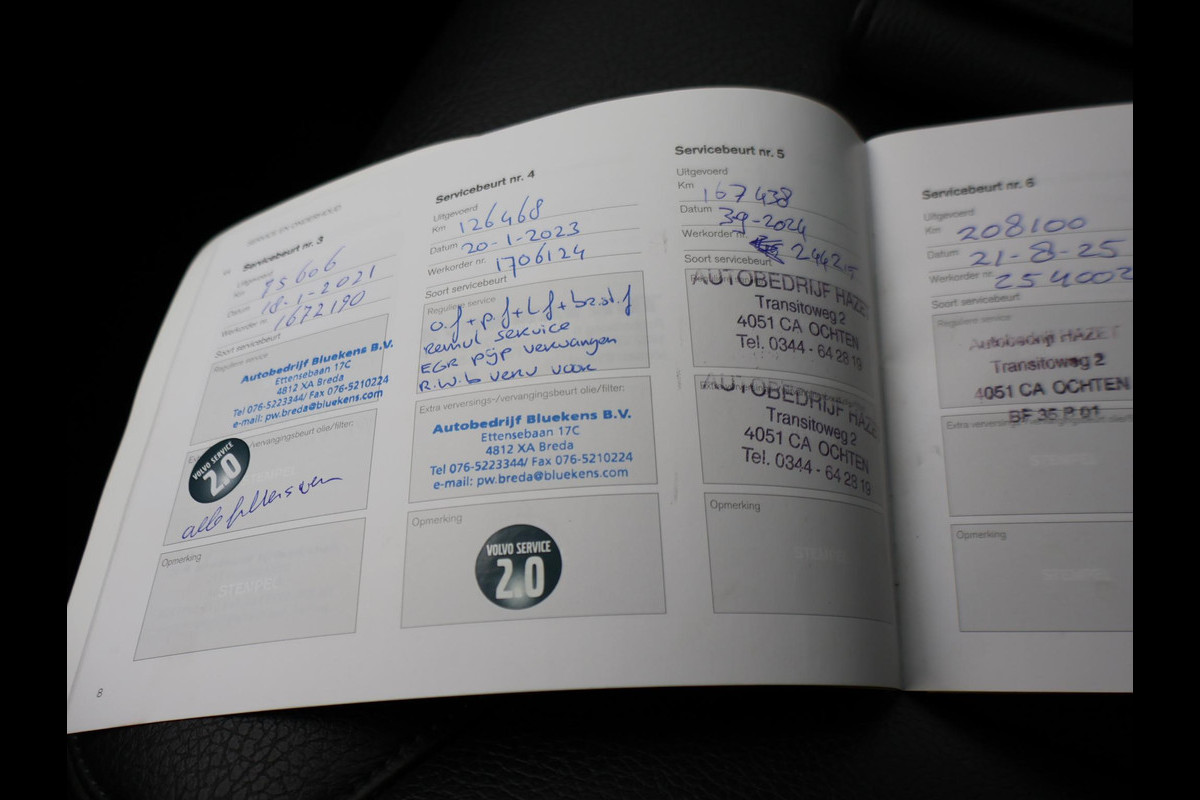 SERVICE EN ONDERHOUD
Servicebeurt nr. 3
Uitgevoerd
Km 75606
Datum 18-1-2021
Werkorder nr. 1672190
Soort servicebeurt
Reguliere service
Autobedrijf Bluekens B.V.
Ettensebaan 17C
4812 XA Breda
Tel 076-5223344/ Fax 076-5210224
e-mail: pw.breda@bluekens.com
/vervangingsbeurt olie/filter:
VOLVO SERVICE
2.0
alle filters
Opmerking
STEMPEL
8
Servicebeurt nr. 4
Uitgevoerd
Km 126468
Datum 20-1-2023
Werkorder nr. 1706124
Soort servicebeurt
Reguliere service
o.f + p.f + l.f + br.st.f
remvl service
EGR pijp vervangen
R.w.b verv voor
Extra verversings-/vervangingsbeurt olie/filter:
Autobedrijf Bluekens B.V.
Ettensebaan 17C
4812 XA Breda
Tel 076-5223344/ Fax 076-5210224
e-mail: pw.breda@bluekens.com
Opmerking
VOLVO SERVICE
2.0
Servicebeurt nr. 5
Uitgevoerd
Km 167438
Datum 39-2024
Werkorder nr. 244215
Soort servicebeurt
AUTOBEDRIJF HAZET
Transitoweg 2
4051 CA OCHTEN
Tel. 0344 - 64 28 19
AUTOBEDRIJF HAZE
Transitoweg 2
4051 CA OCHTEN
Tel. 0344 - 64 28 19
Opmerking
Servicebeurt nr. 6
Uitgevoerd
Km 208100
Datum 21-8-25
Werkorder nr. 254002
Soort servicebeurt
Reguliere service
Autobedrijf HAZET
Transitoweg 2
4051 CA OCHTEN
BF 35 P 01
Extra verversings-/vervangingsbeurt
Opmerking
STEMPEL